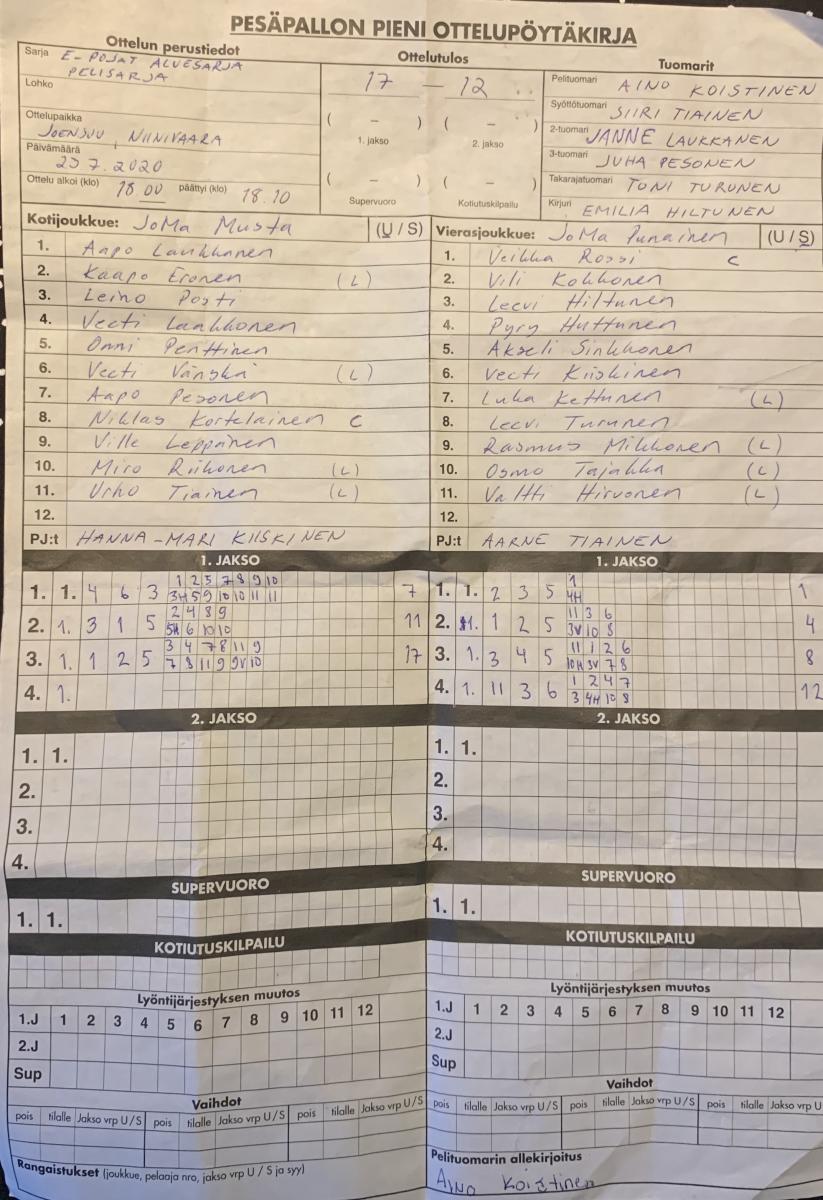 PESÄPALLON PIENI OTTELUPÖYTÄKIRJA
Ottelun perustiedot
Sarja E-POJAT ALUESARJA
PELISARJA
Lohko
Ottelupaikka
JOENSUU, NIINIVAARA
Päivämäärä
23 7. 2020
Ottelu alkoi (klo) 18.00 päättyi (klo) 18.10
Ottelutulos
17 — 12
( – ) ( – )
1. jakso 2. jakso
( – ) ( – )
Supervuoro Kotiutuskilpailu
Tuomarit
Pelituomari AINO KOISTINEN
Syöttötuomari SIIRI TIAINEN
2-tuomari JANNE LAUKKANEN
3-tuomari JUHA PESONEN
Takarajatuomari TONI TURUNEN
Kirjuri EMILIA HILTUNEN
Kotijoukkue: JoMa Musta (U / S)
1. Aapo Laukkanen
2. Kaapo Eronen (L)
3. Leino Posti
4. Veeti Laukkonen
5. Onni Penttinen
6. Veeti Vänskä (L)
7. Aapo Pesonen
8. Niklas Kortelainen C
9. Ville Leppänen
10. Miro Riikonen (L)
11. Urho Tiainen (L)
12.
PJ:t HANNA-MARI KIISKINEN
Vierasjoukkue: JoMa Punainen (U / S)
1. Veikka Rossi C
2. Vili Kokkonen
3. Leevi Hiltunen
4. Pyry Huttunen
5. Akseli Sinkkonen
6. Veeti Kiiskinen
7. Luka Kettunen (L)
8. Leevi Turunen
9. Rasmus Mikkonen (L)
10. Osmo Tajakka (L)
11. Valtti Hirvonen (L)
12.
PJ:t AARNE TIAINEN
1. JAKSO
1 2 5 7 8 9 10
1. 1. 4 6 3 3H 5 9 10 10 11 11 7
2 4 8 9
2. 1. 3 1 5 5H 6 10 10 11
3 4 7 8 11 9
3. 1. 1 2 5 7 8 11 9 9V 10 17
4. 1.
1. JAKSO
1
1. 1. 2 3 5 4H 1
11 3 6
2. 1. 1 2 5 3V 10 8 4
11 1 2 6
3. 1. 3 4 5 10H 3V 7 8 8
1 2 4 7
4. 1. 11 3 6 3 4H 10 8 12
2. JAKSO
1. 1.
2.
3.
4.
2. JAKSO
1. 1.
2.
3.
4.
SUPERVUORO
1. 1.
SUPERVUORO
1. 1.
KOTIUTUSKILPAILU
KOTIUTUSKILPAILU
Lyöntijärjestyksen muutos
1.J 1 2 3 4 5 6 7 8 9 10 11 12
2.J
Sup
Lyöntijärjestyksen muutos
1.J 1 2 3 4 5 6 7 8 9 10 11 12
2.J
Sup
Vaihdot
pois tilalle Jakso vrp U / S pois tilalle Jakso vrp U / S pois tilalle Jakso vrp U / S
Vaihdot
pois tilalle Jakso vrp U / S pois tilalle Jakso vrp U / S pois tilalle Jakso vrp U
Rangaistukset (joukkue, pelaaja nro, jakso vrp U / S ja syy)
Pelituomarin allekirjoitus
Aino Koistinen